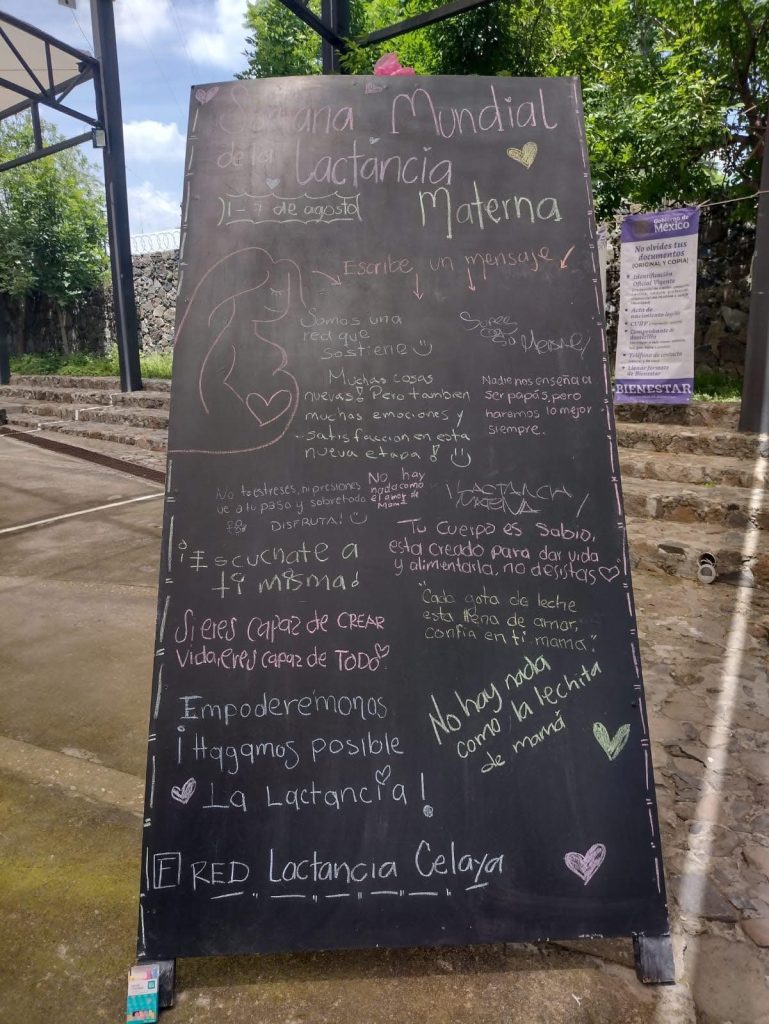 Semana Mundial
de la Lactancia
Materna
1-7 de agosto
Escribe un mensaje
Somos una
red que
sostiene
Muchas cosas
nuevas! Pero también
muchas emociones y
satisfacción en esta
nueva etapa!
Nadie nos enseña a
ser papás, pero
haremos lo mejor
siempre.
No te estreses, ni presiones
ve a tu paso y sobretodo
DISFRUTA!
No hay
nada como
el amor de
Mamá
LACTANCIA
¡Escuchate a
ti misma!
Tu cuerpo es sabio,
esta creado para dar vida
y alimentarla, no desistas
"Cada gota de leche
esta llena de amor,
confia en ti mama."
Si eres capaz de CREAR
vida, eres capaz de TODO
No hay nada
como la lechita
de mamá
Empoderémonos
¡Hagamos posible
La Lactancia!
F RED Lactancia Celaya
Gobierno de
México
No olvides tus
documentos
(ORIGINAL Y COPIA)
Identificación
Oficial Vigente
Acta de
nacimiento legible
CURP
Comprobante de
domicilio
Teléfono de contacto
Llenar formato
de Bienestar
BIENESTAR